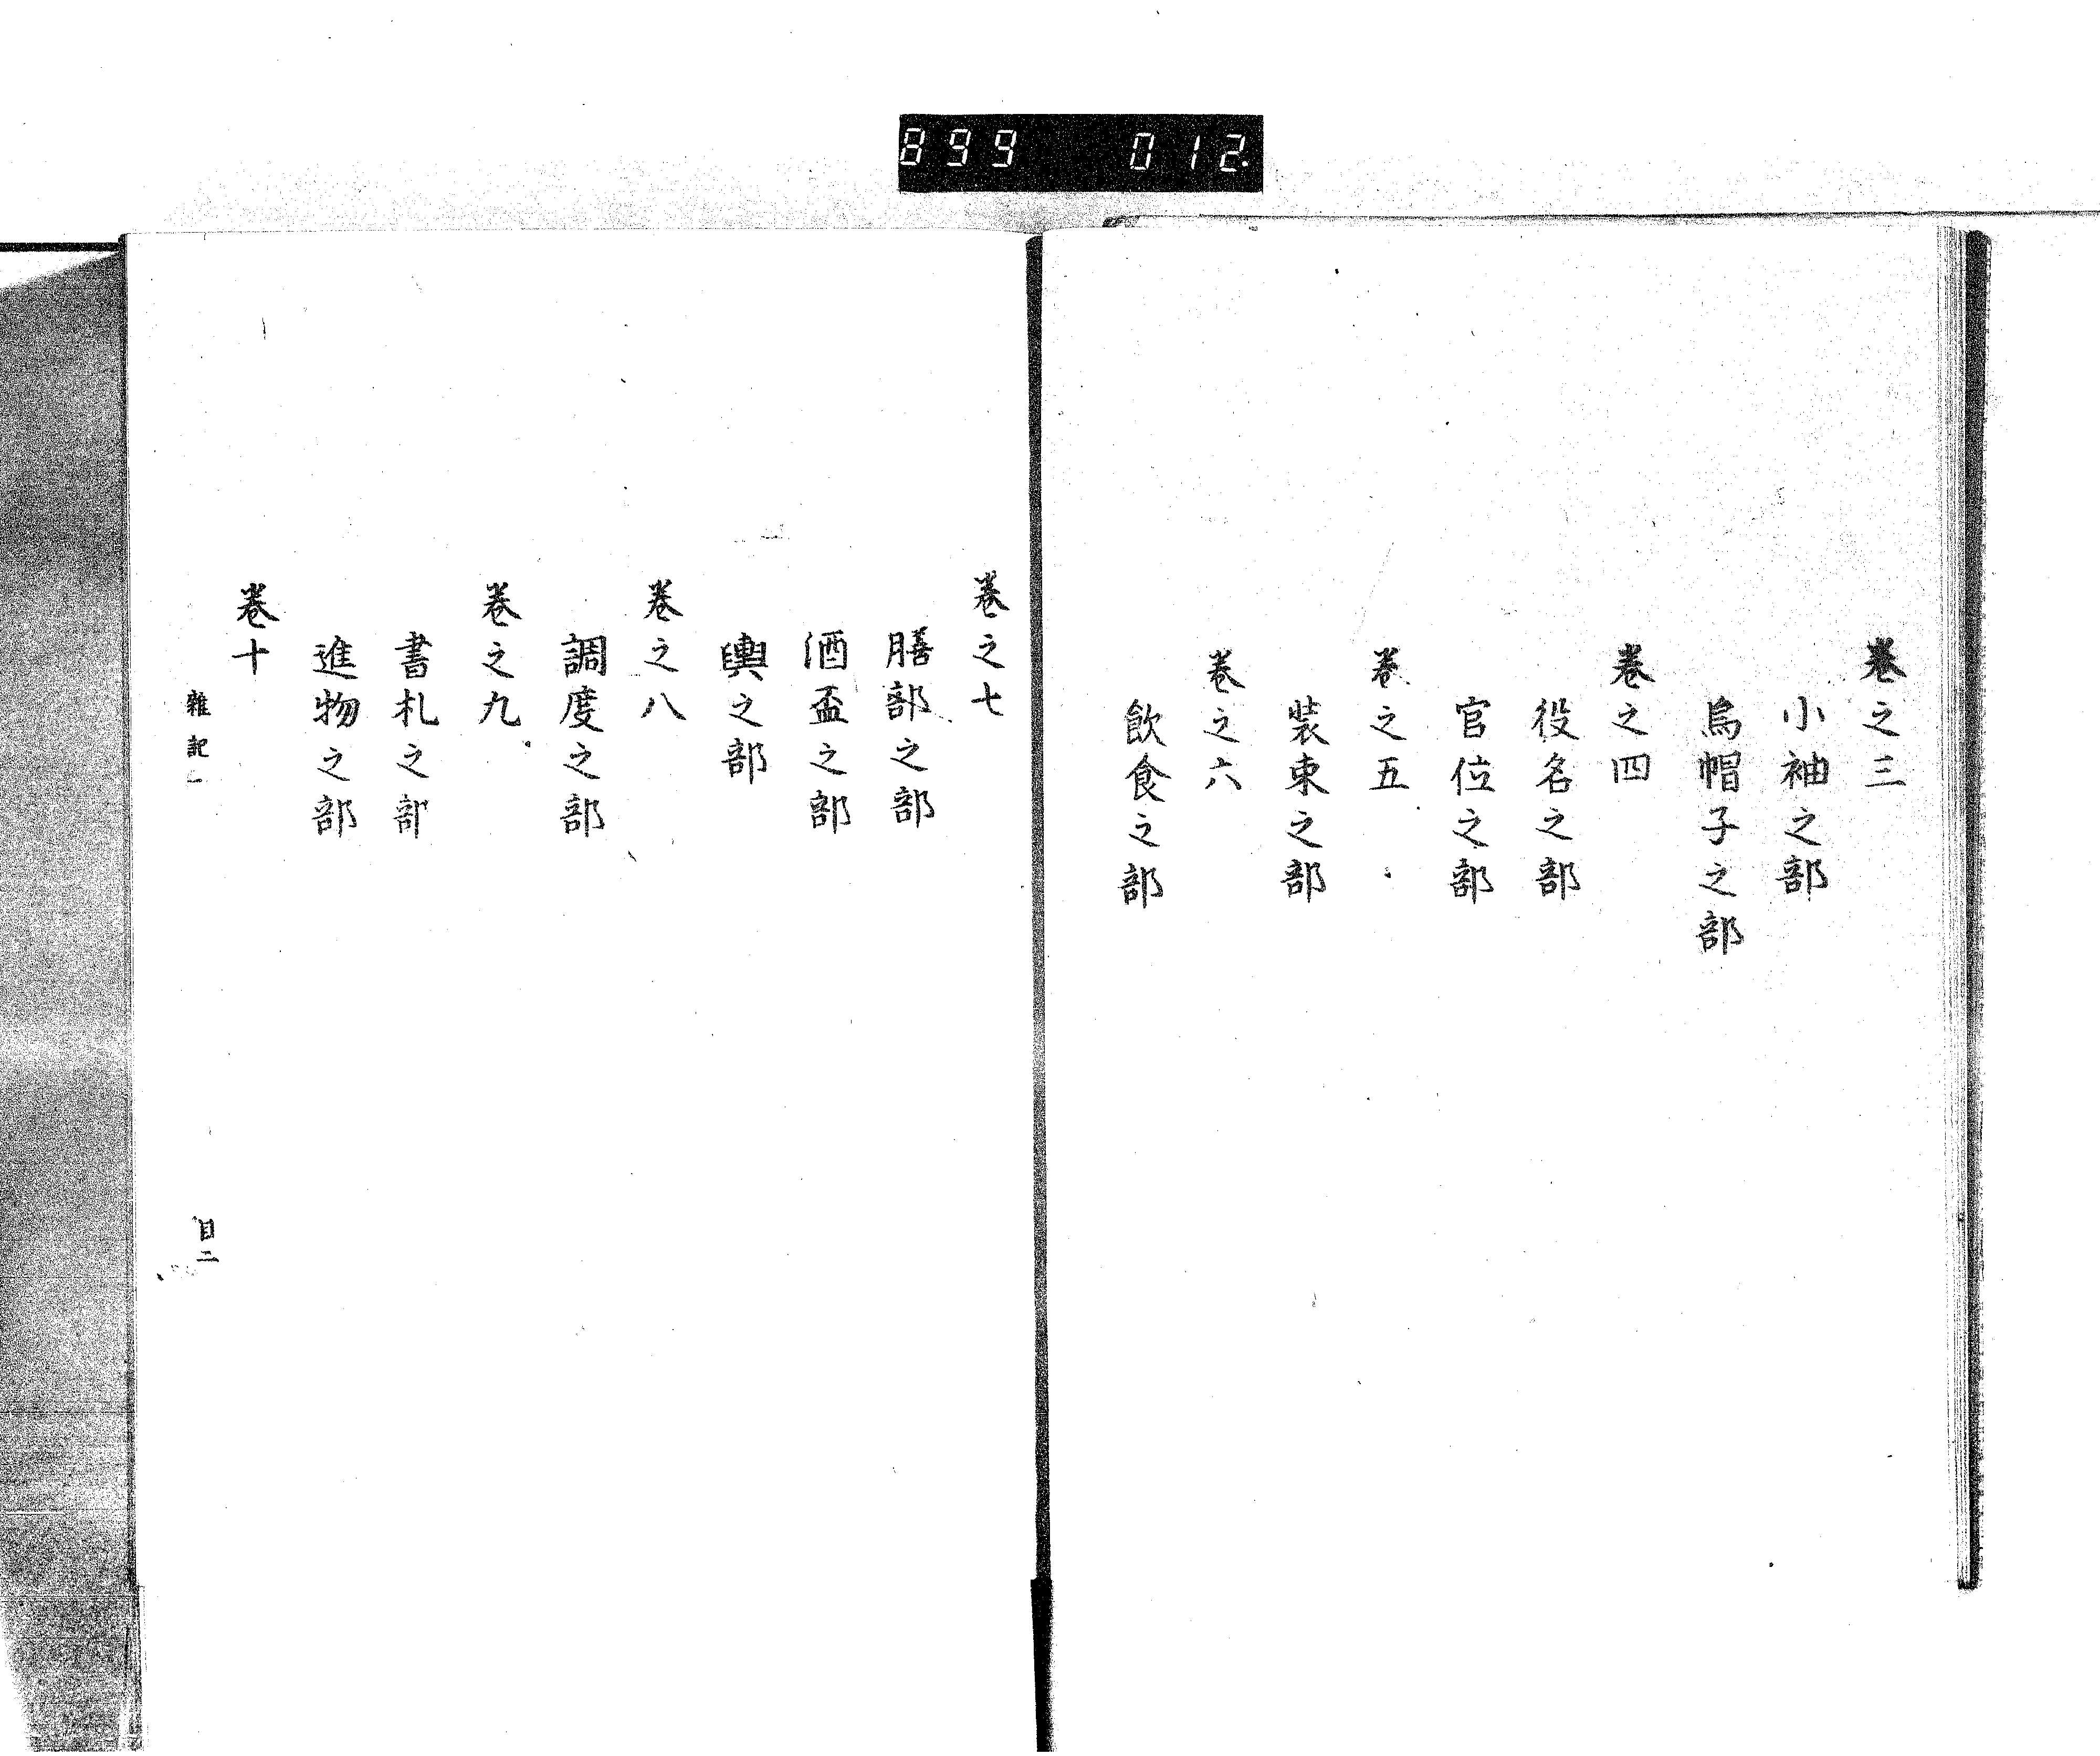 899 012
卷之三
小袖之部
烏帽子之部
卷之四
役名之部
官位之部
卷之五
裝束之部
卷之六
飲食之部
卷之七
膳部之部
酒盃之部
輿之部
卷之八
調度之部
卷之九
書札之部
進物之部
卷十
雜記一
目二